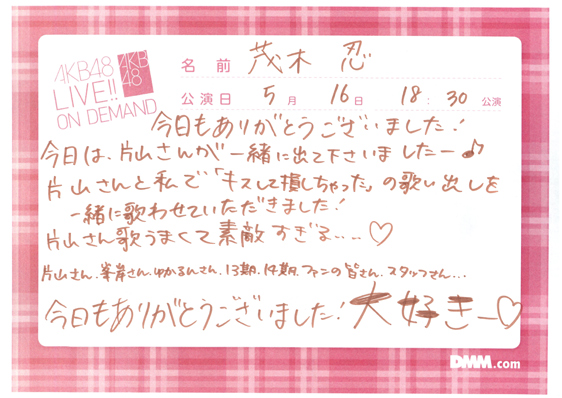 AKB48
LIVE!!
ON DEMAND
AKB
48
名前 茂木 忍
公演日 5月 16日 18:30 公演
今日もありがとうございました!
今日は、片山さんが一緒に出て下さいましたー♪
片山さんと私で「キスして損しちゃった」の歌い出しを
一緒に歌わせていただきました!
片山さん歌うまくて素敵すぎる....♡
片山さん、峯岸さん、ゆかるんさん、13期、14期、ファンの皆さん、スタッフさん...
今日もありがとうございました! 大好きー♡
DMM.com